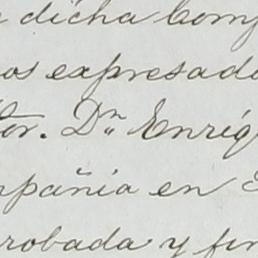 dicha Comp
os expresado
tor. Dn Enriq
mpañia en
robada y fir